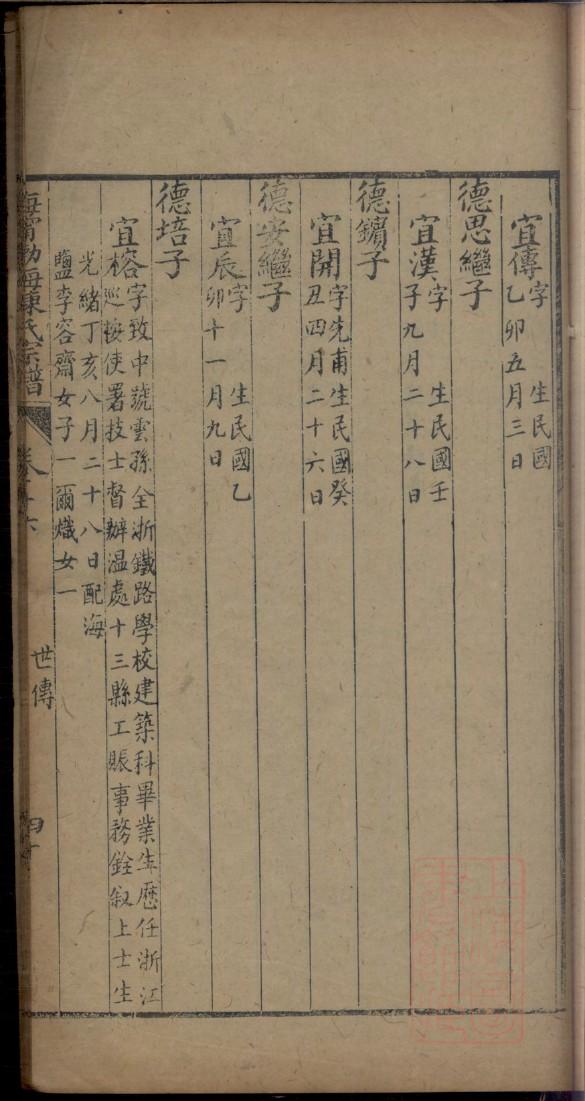 宜傳字　　生民國
乙卯五月三日
德思繼子
宜漢字　　生民國壬
子九月二十八日
德鑛子
宜開字先甫生民國癸
丑四月二十六日
德安繼子
宜辰字　　生民國乙
卯十一月九日
德培子
宜榕字致中號雲孫全浙鐵路學校建築科畢業生歷任浙江
巡按使署技士督辦温處十三縣工賬事務銓叙上士生
光緒丁亥八月二十八日配海
鹽李容齋女子一爾熾女一
海甯渤海陳氏宗譜
世傳